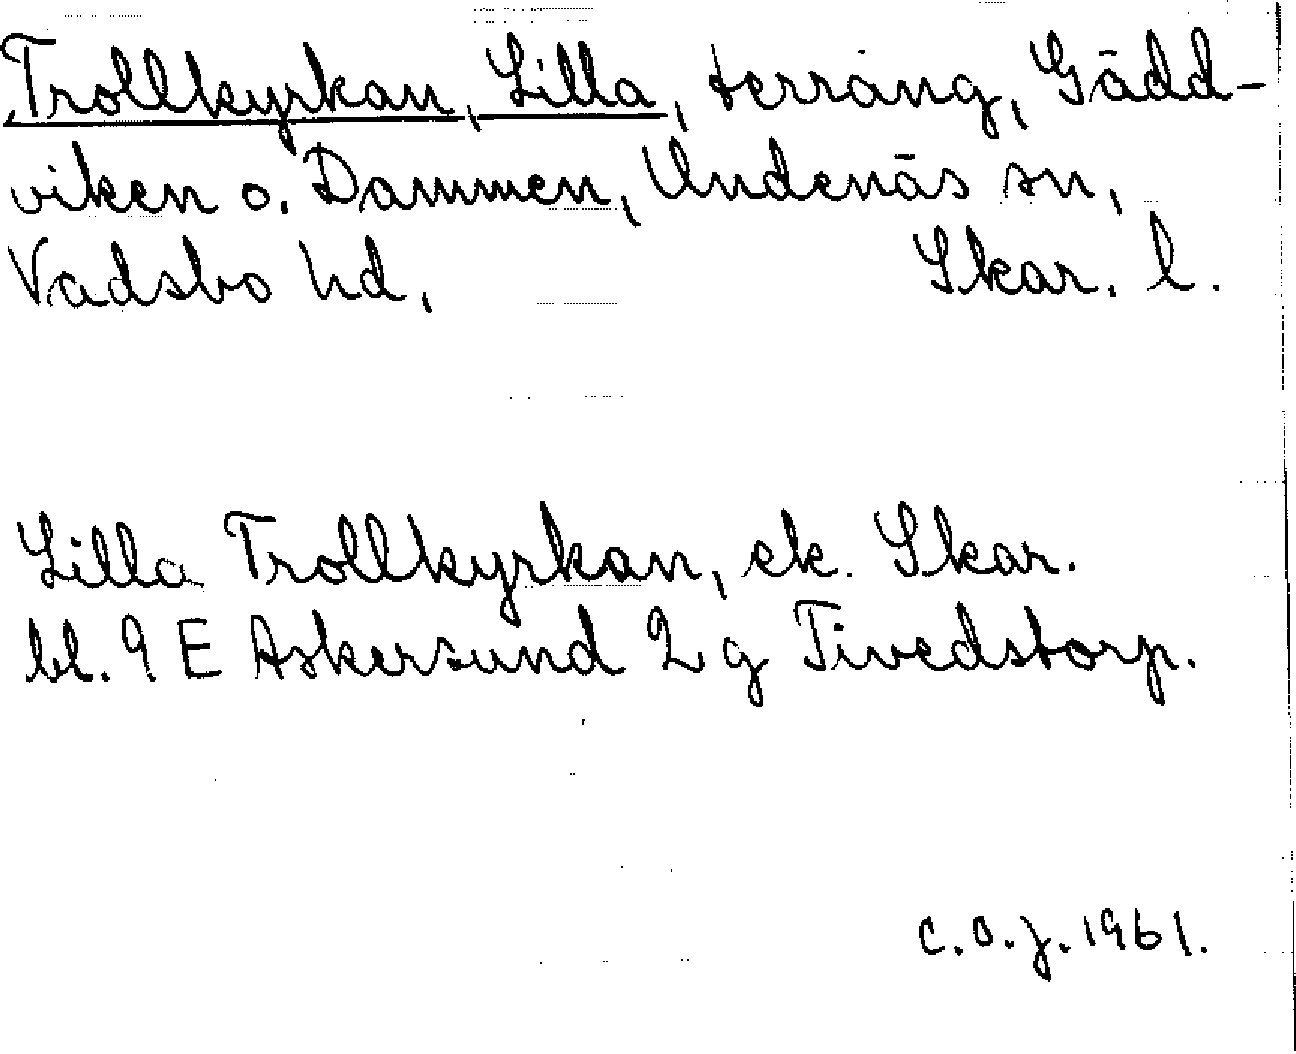 Trollkyrkan, Lilla, terräng, Gädd-
viken o. Dammen, Undenäs sn,
Vadsbo hd, Skar. l.
Lilla Trollkyrkan, ek. Skar.
bl. 9 E Askersund 2 g Tivedstorp.
C.O.J. 1961.